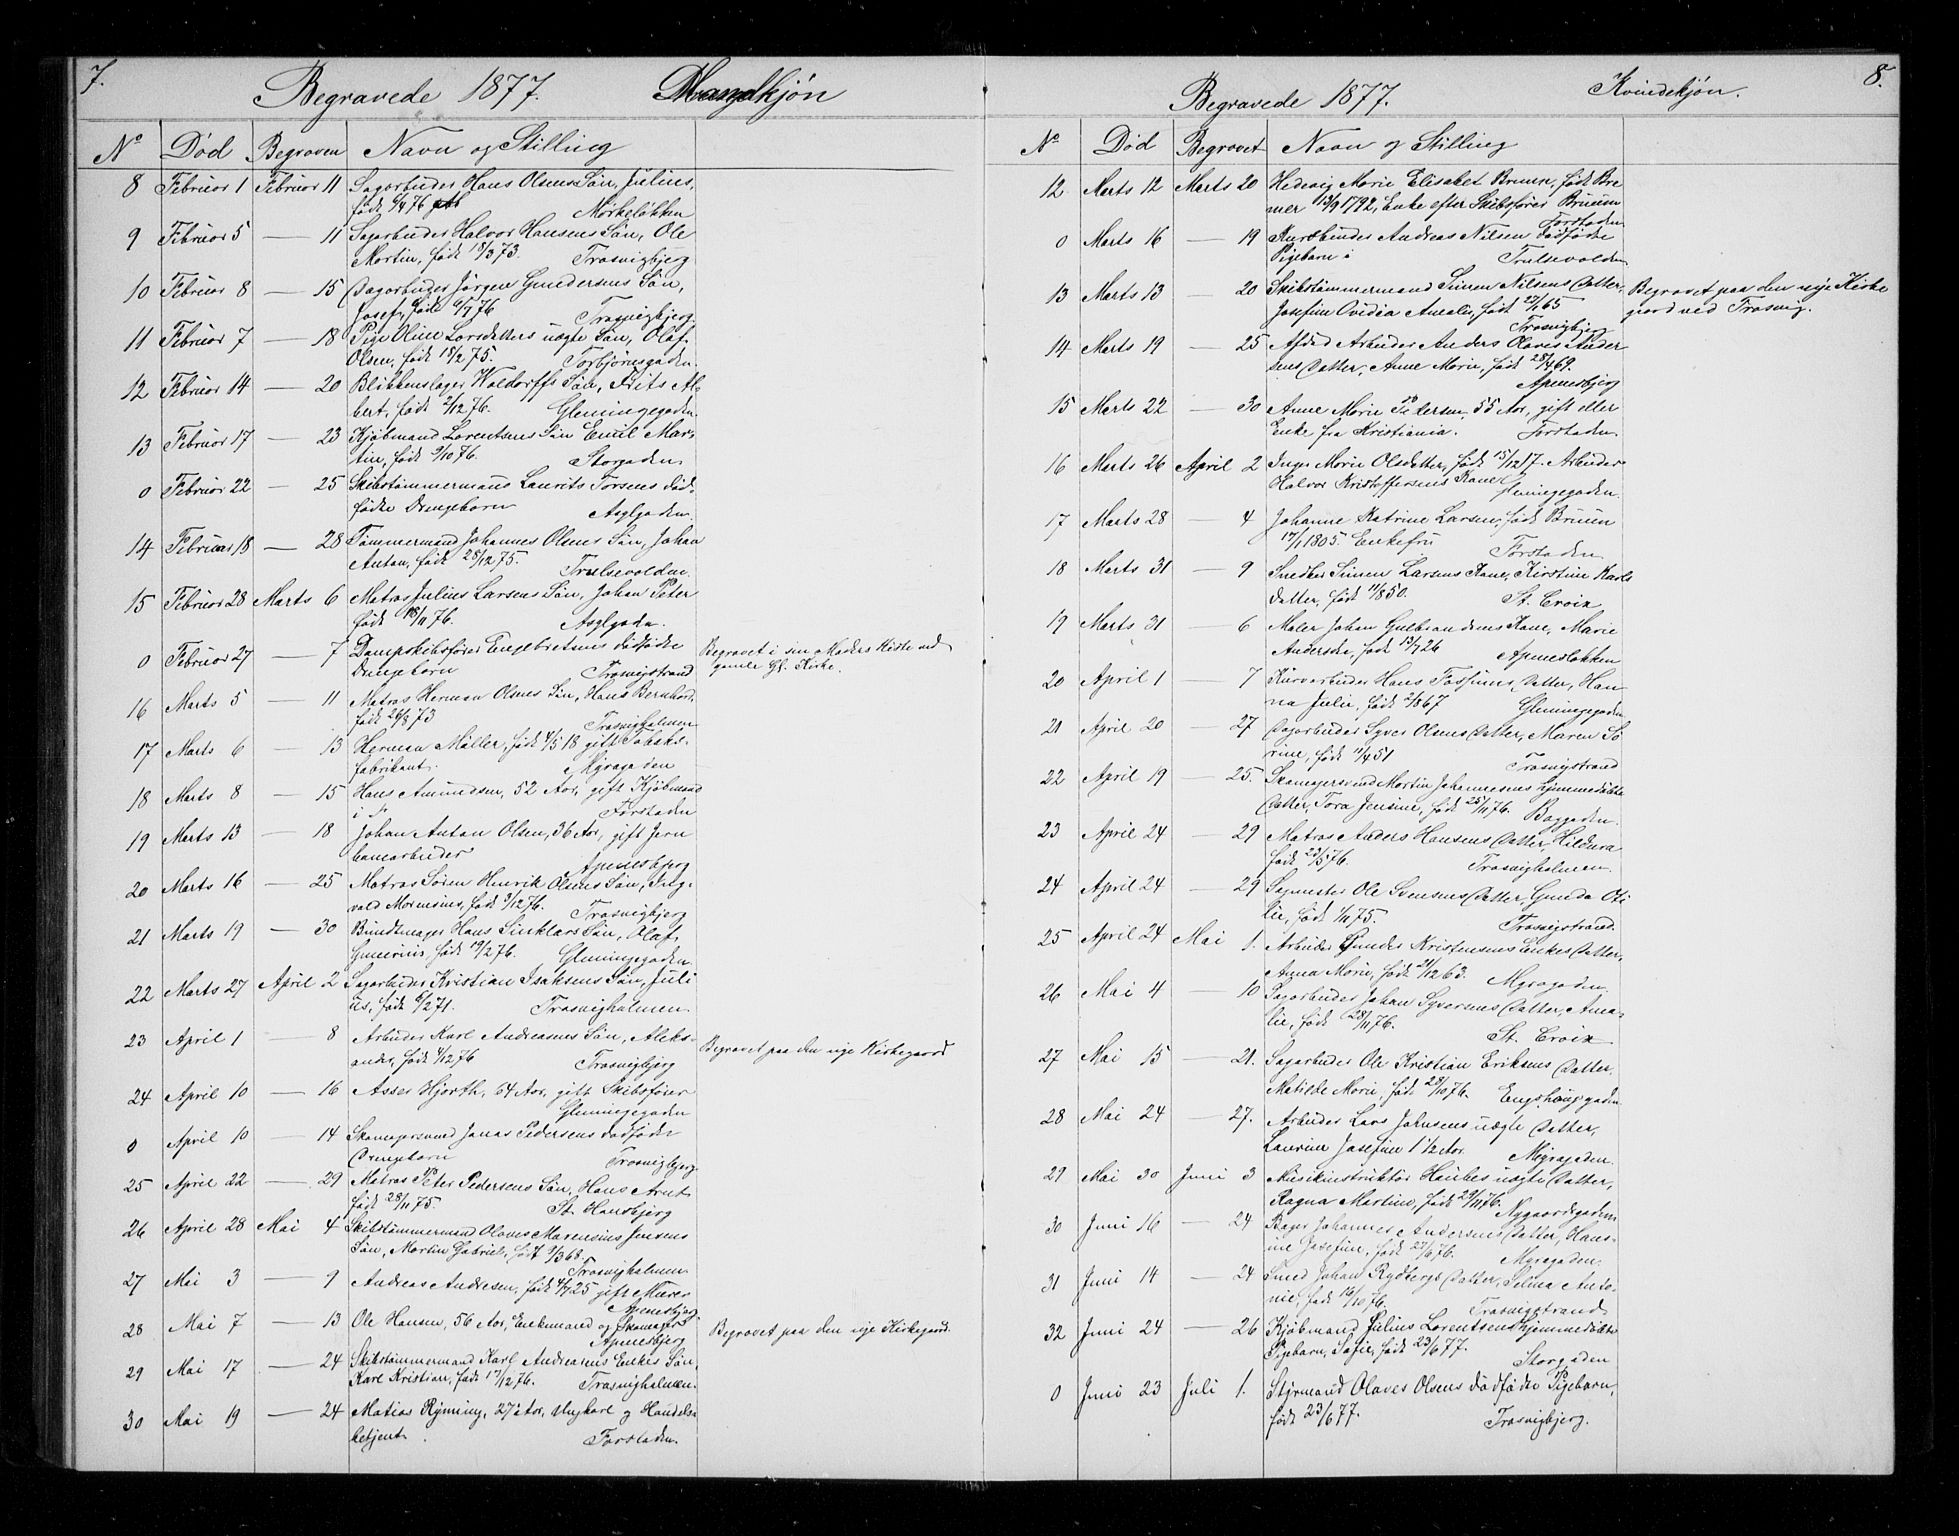 7.
Begravede 1877. Mandkjøn
No Død Begraven Navn og Stilling
8 Februar 1 Februar 11 Sagarbeider Hans Olsens Søn, Julius,
født 6/4 76 Mørkeløkken
9 Februar 5 — 11 Sagarbeider Halvor Hansens Søn, Ole
Martin, født 18/3 73. Trosvigbjerg
10 Februar 8 — 15 Dagarbeider Jørgen Gundersens Søn,
Josef, født 6/7 76 Trosvigbjerg
11 Februar 7 — 18 Pige Oline Larsdatters uægte Søn, Olaf
Olsen, født 18/2 75. Torbjørnsgaden.
12 Februar 14 — 20 Blikkenslager Waldorffs Søn, Frits Al-
bert, født 2/12 76. Glemmingegaden.
13 Februar 17 — 23 Kjøbmand Lorentsens Søn Emil Mar-
tin, født 9/10 76. Storgaden
0 Februar 22 — 25 Skibstømmermand Laurits Torsens død-
fødte Drengebarn Asylgaden
14 Februar 18 — 28 Tømmermand Johannes Olsens Søn, Johan
Anton, født 28/12 75. Trulsevolden.
15 Februar 28 Marts 6 Matros Julius Larsens Søn, Johan Peter
født 18/11 76. Asylgaden.
0 Februar 27 — 7 Dampskibsfører Engebretsens dødfødte
Drengebarn Trosvigstrand
Begravet i sin Moders Kiste ved
gamle Gl. Kirke.
16 Marts 5 — 11 Matros Herman Olsens Søn, Hans Bernhard.
født 26/8 73 Trosvigholmen
17 Marts 6 — 13 Herman Møller, født 4/5 18 gift Tobaks-
fabrikant. Myragaden
18 Marts 8 — 15 Hans Amundsen, 52 Aar, gift Kjøbmand
Forstaden
19 Marts 13 — 18 Johan Anton Olsen, 36 Aar, gift Jern
banearbeider Apenesbjerg
20 Marts 16 — 25 Matros Søren Henrik Olsens Søn, Ing-
vald Morensius, født 9/12 76. Trosvigbjerg
21 Marts 19 — 30 Bundtmager Hans Sinklars Søn, Olaf
Gunerius, født 19/2 76. Glemmingegaden.
22 Marts 27 April 2 Sagarbeider Kristian Isaksens Søn, Juli
us, født 6/2 71. Trosvigholmen
23 April 1 — 8 Arbeider Karl Andreasens Søn, Aleks-
ander, født 4/12 76 Trosvigbjerg
Begravet paa den nye Kirkegaard
24 April 10 — 16 Asser Hjorth, 64 Aar, gift Skibsfører
Glemmingegaden
0 April 10 — 14 Skomagersvend Jonas Pedersens dødfødte
Drengebarn Trosvigbjerg
25 April 22 — 29 Matros Peter Pedersens Søn, Hans Arnt
født 28/11 75. St. Hansbjerg
26 April 28 Mai 4 Skibstømmermand Olaves Marensius Jensens
Søn, Martin Gabriel, født 9/3 68. Trosvigholmen
27 Mai 3 — 9 Andreas Andresen, født 4/7 25 gift Murer
Apenesbjerg
28 Mai 7 — 13 Ole Hansen, 56 Aar, Enkemand og Skomager
Apenesbjerg
Begravet paa den nye Kirkegaard.
29 Mai 17 — 24 Skibstømmermand Karl Andreasens Enkes Søn,
Karl Kristian, født 17/12 76. Trosvigholmen.
30 Mai 19 — 24 Matias Rynning, 27 Aar, Ungkarl og Handels-
betjent. Forstaden.
8.
Begravede 1877. Kvindekjøn.
No Død Begravet Navn og Stilling
12 Marts 12 Marts 20 Hedevig Marie Elisabet Bruun, født Bre
mer 13/9 1792, Enke efter Skibsfører Bruun
Forstaden
0 Marts 16 — 19 Andreas Nilsens dødfødte
Pigebarn Trulsevolden
13 Marts 13 — 20 Skibstømmermand Simen Nilsens Datter,
Josefine Ovidia Amalie, født 27/1 65
Trosvigbjerg
Begravet paa den nye Kirke
gaard ved Trosvig.
14 Marts 19 — 25 Afdød Arbeider Anders Olaves Ander
sens Datter, Anne Marie, født 28/4 69.
Apenesbjerg
15 Marts 22 — 30 Anne Marie Pedersen, 55 Aar, gift eller
Enke fra Kristiania. Forstaden.
16 Marts 26 April 2 Inger Marie Olsdatter, født 15/12 17. Arbeider
Halvor Kristoffersens Kone Glemmingegaden
17 Marts 28 — 4 Johanne Katrine Larsen, født Bruun
17/1 1805. Enkefru Forstaden
18 Marts 31 — 9 Snedker Simen Larsens Kone, Kirstine Karls
datter, født 11/8 50. St. Croix
19 Marts 31 — 6 Maler Johan Gulbrandsens Kone, Marie
Andersdr, født 13/7 26 Apenesløkken
20 April 1 — 7 Kurvarbeider Hans Fossums Datter, Han
na Julie, født 2/8 67 Glemmingegaden
21 April 20 — 27 Dagarbeider Syver Olsens Datter, Maren So
rine, født 11/4 51 Trosvigstrand
22 April 19 — 25. Skomagersvend Martin Johannesens hjemmedøbte
Datter, Tora Jensine, født 25/11 76. Baggaden.
23 April 24 — 29 Matros Anders Hansens Datter, Hildura
født 23/5 76. Trosvigholmen.
24 April 24 — 29 Sagmester Ole Svensens Datter, Gunda Oti
lie, født 4/11 75. Trosvigstrand.
25 April 24 Mai 1. Arbeider Gunder Kristensens Enkes Datter,
Anna Marie, født 21/12 63. Myragaden.
26 Mai 4 — 10 Sagarbeider Johan Syversens Datter, Ama-
lie, født 28/11 76. St. Croix
27 Mai 15 — 21. Sagarbeider Ole Kristian Eriksens Datter.
Matilde Marie, født 28/10 76. Engshougsgaden
28 Mai 24 — 27. Arbeider Lars Johnsens uægte Datter,
Laurine Josefine 1 1/2 Aar. Myragaden.
29 Mai 30 Juni 3 Musikinstruktør Haubes uægte Datter,
Ragna Martine, født 29/11 76.
Nygaardsgaden
30 Juni 16 — 24 Bager Johannes Andersens Datter, Hans-
ine Josefine, født 27/6 76. Myragaden.
31 Juni 14 — 24 Smed Johan Rydbergs Datter, Selma Anto-
nie, født 16/10 76. Trosvigstrand
32 Juni 24 — 26 Kjøbmand Julius Lorentsens hjemmedøbte
Pigebarn, Sofie, født 23/6 77.
Storgaden
0 Juni 23 Juli 1. Styrmand Olaves Olsens dødfødte Pigebarn,
født 23/6 77. Trosvigbjerg.